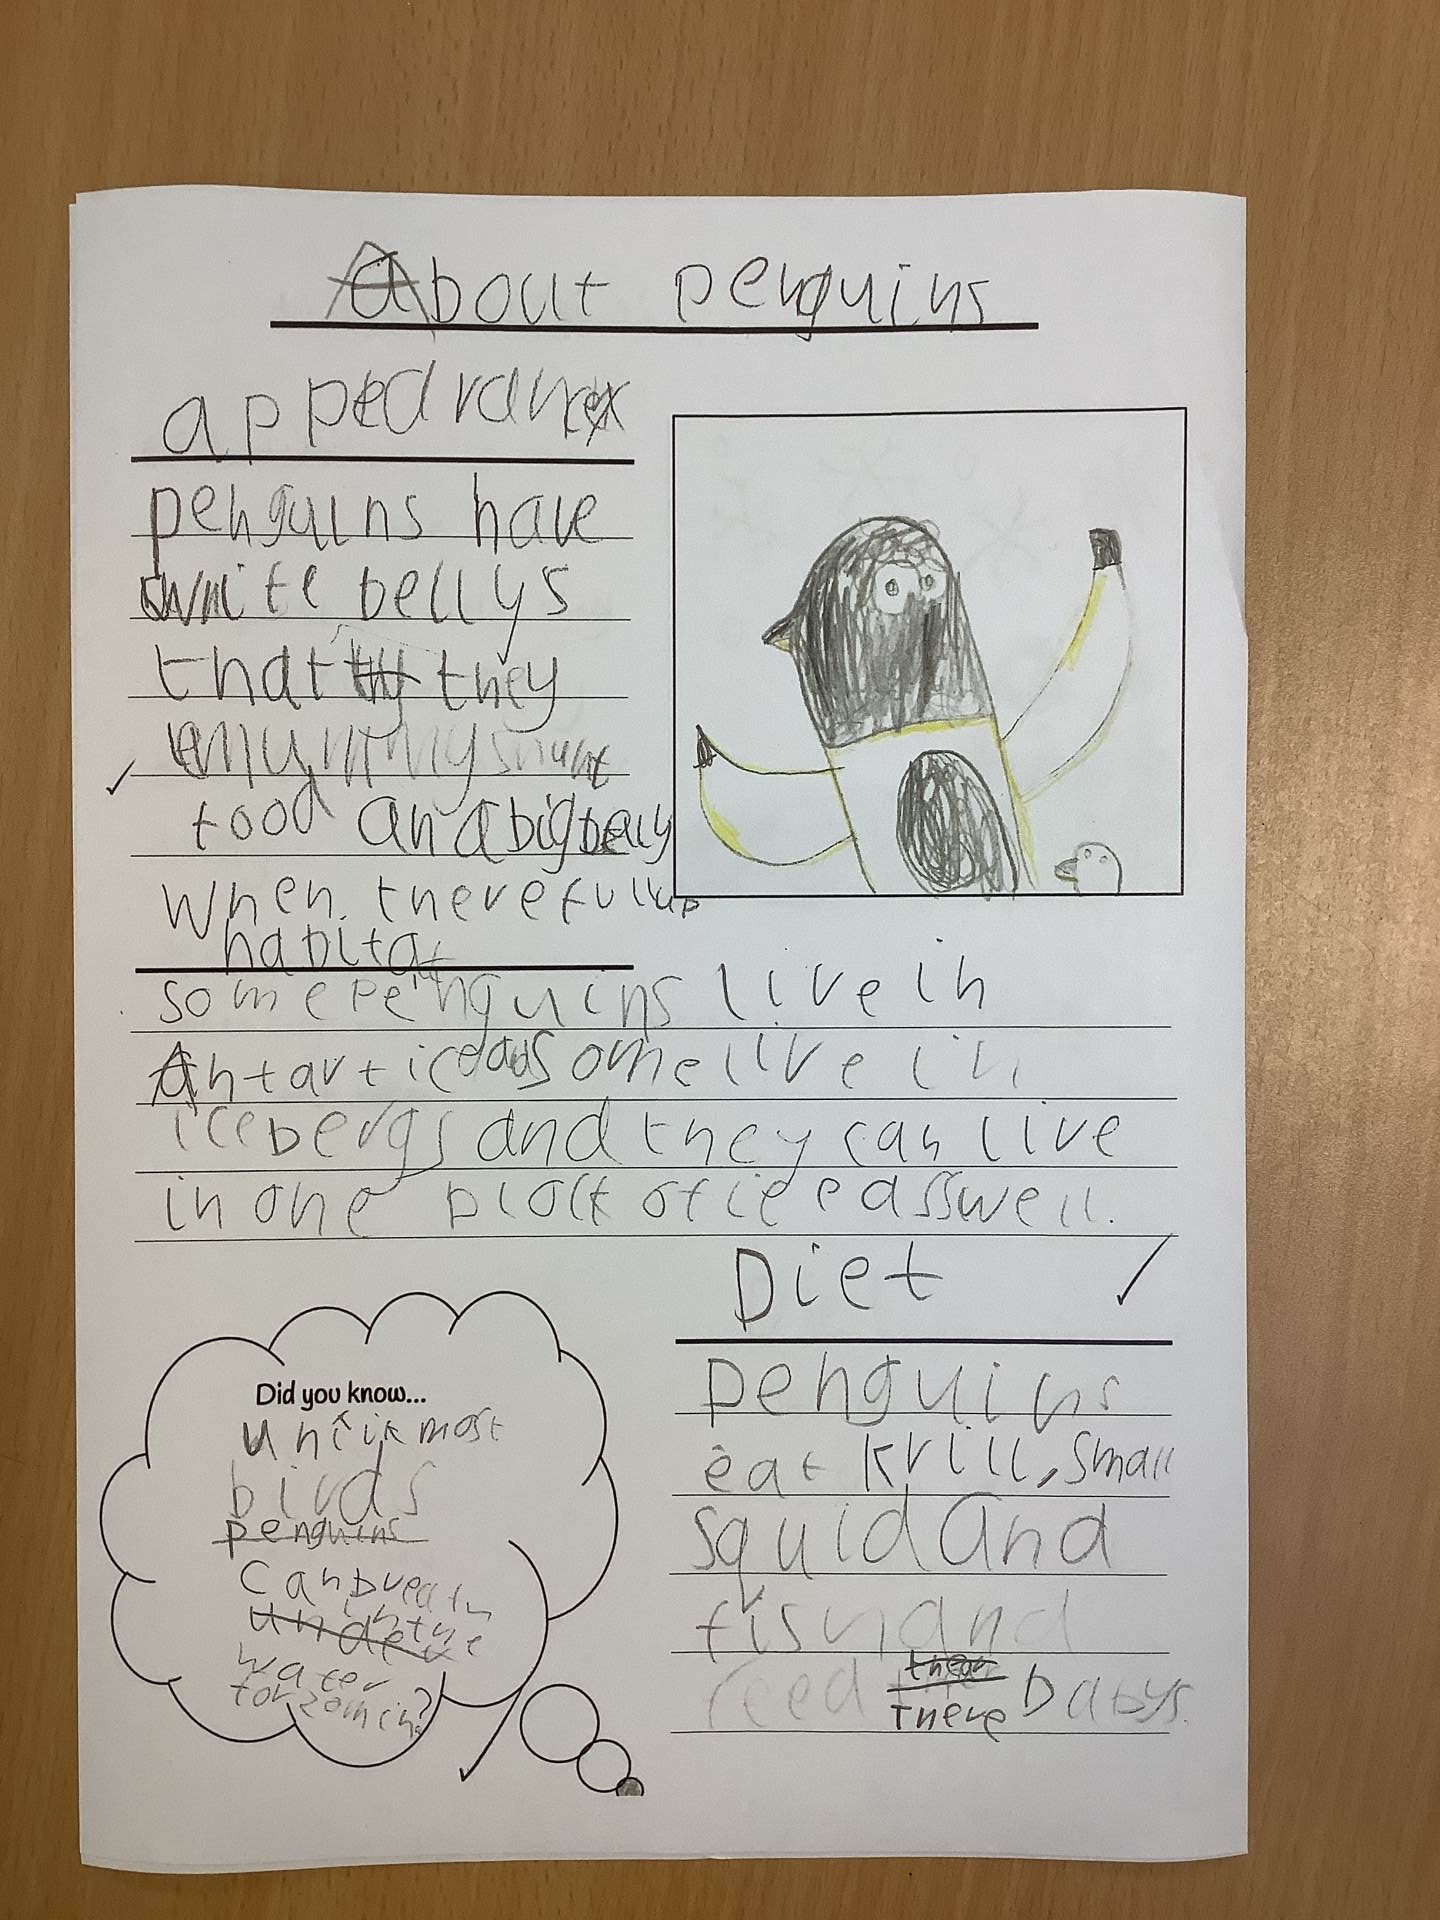 About penguins
appearance
penguins have
white bellys
that they
food and a big belly
when there full up
habitat
some penguins live in
Antartic and some live in
icebergs and they can live
in one block of icee asswell.
Diet
penguins
eat krill, small
squid and
fish and
feed there babys.
Did you know...
unlik most
birds
penguins
can breath
in the
water
for 20 min?